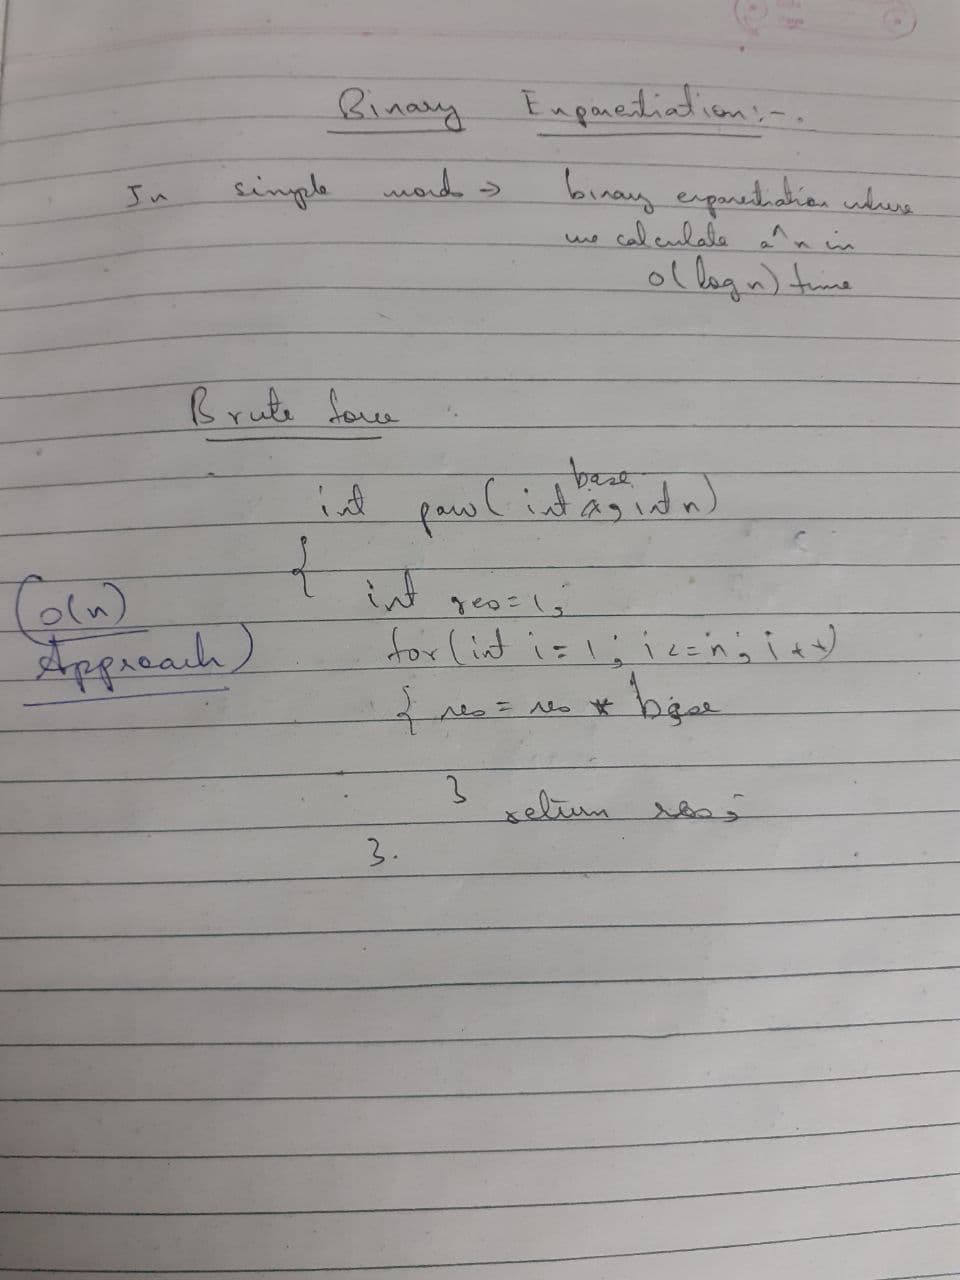 Binary Exponentiation:-.
In simple words => binary exponentiation where
we calculate a^n in
O(log n) time
Brute force
base
int pow(int a, int n)
{
int res=1;
(O(n)
for(int i=1; i<=n; i++)
Approach)
{ res = res * base
}
return res;
}.